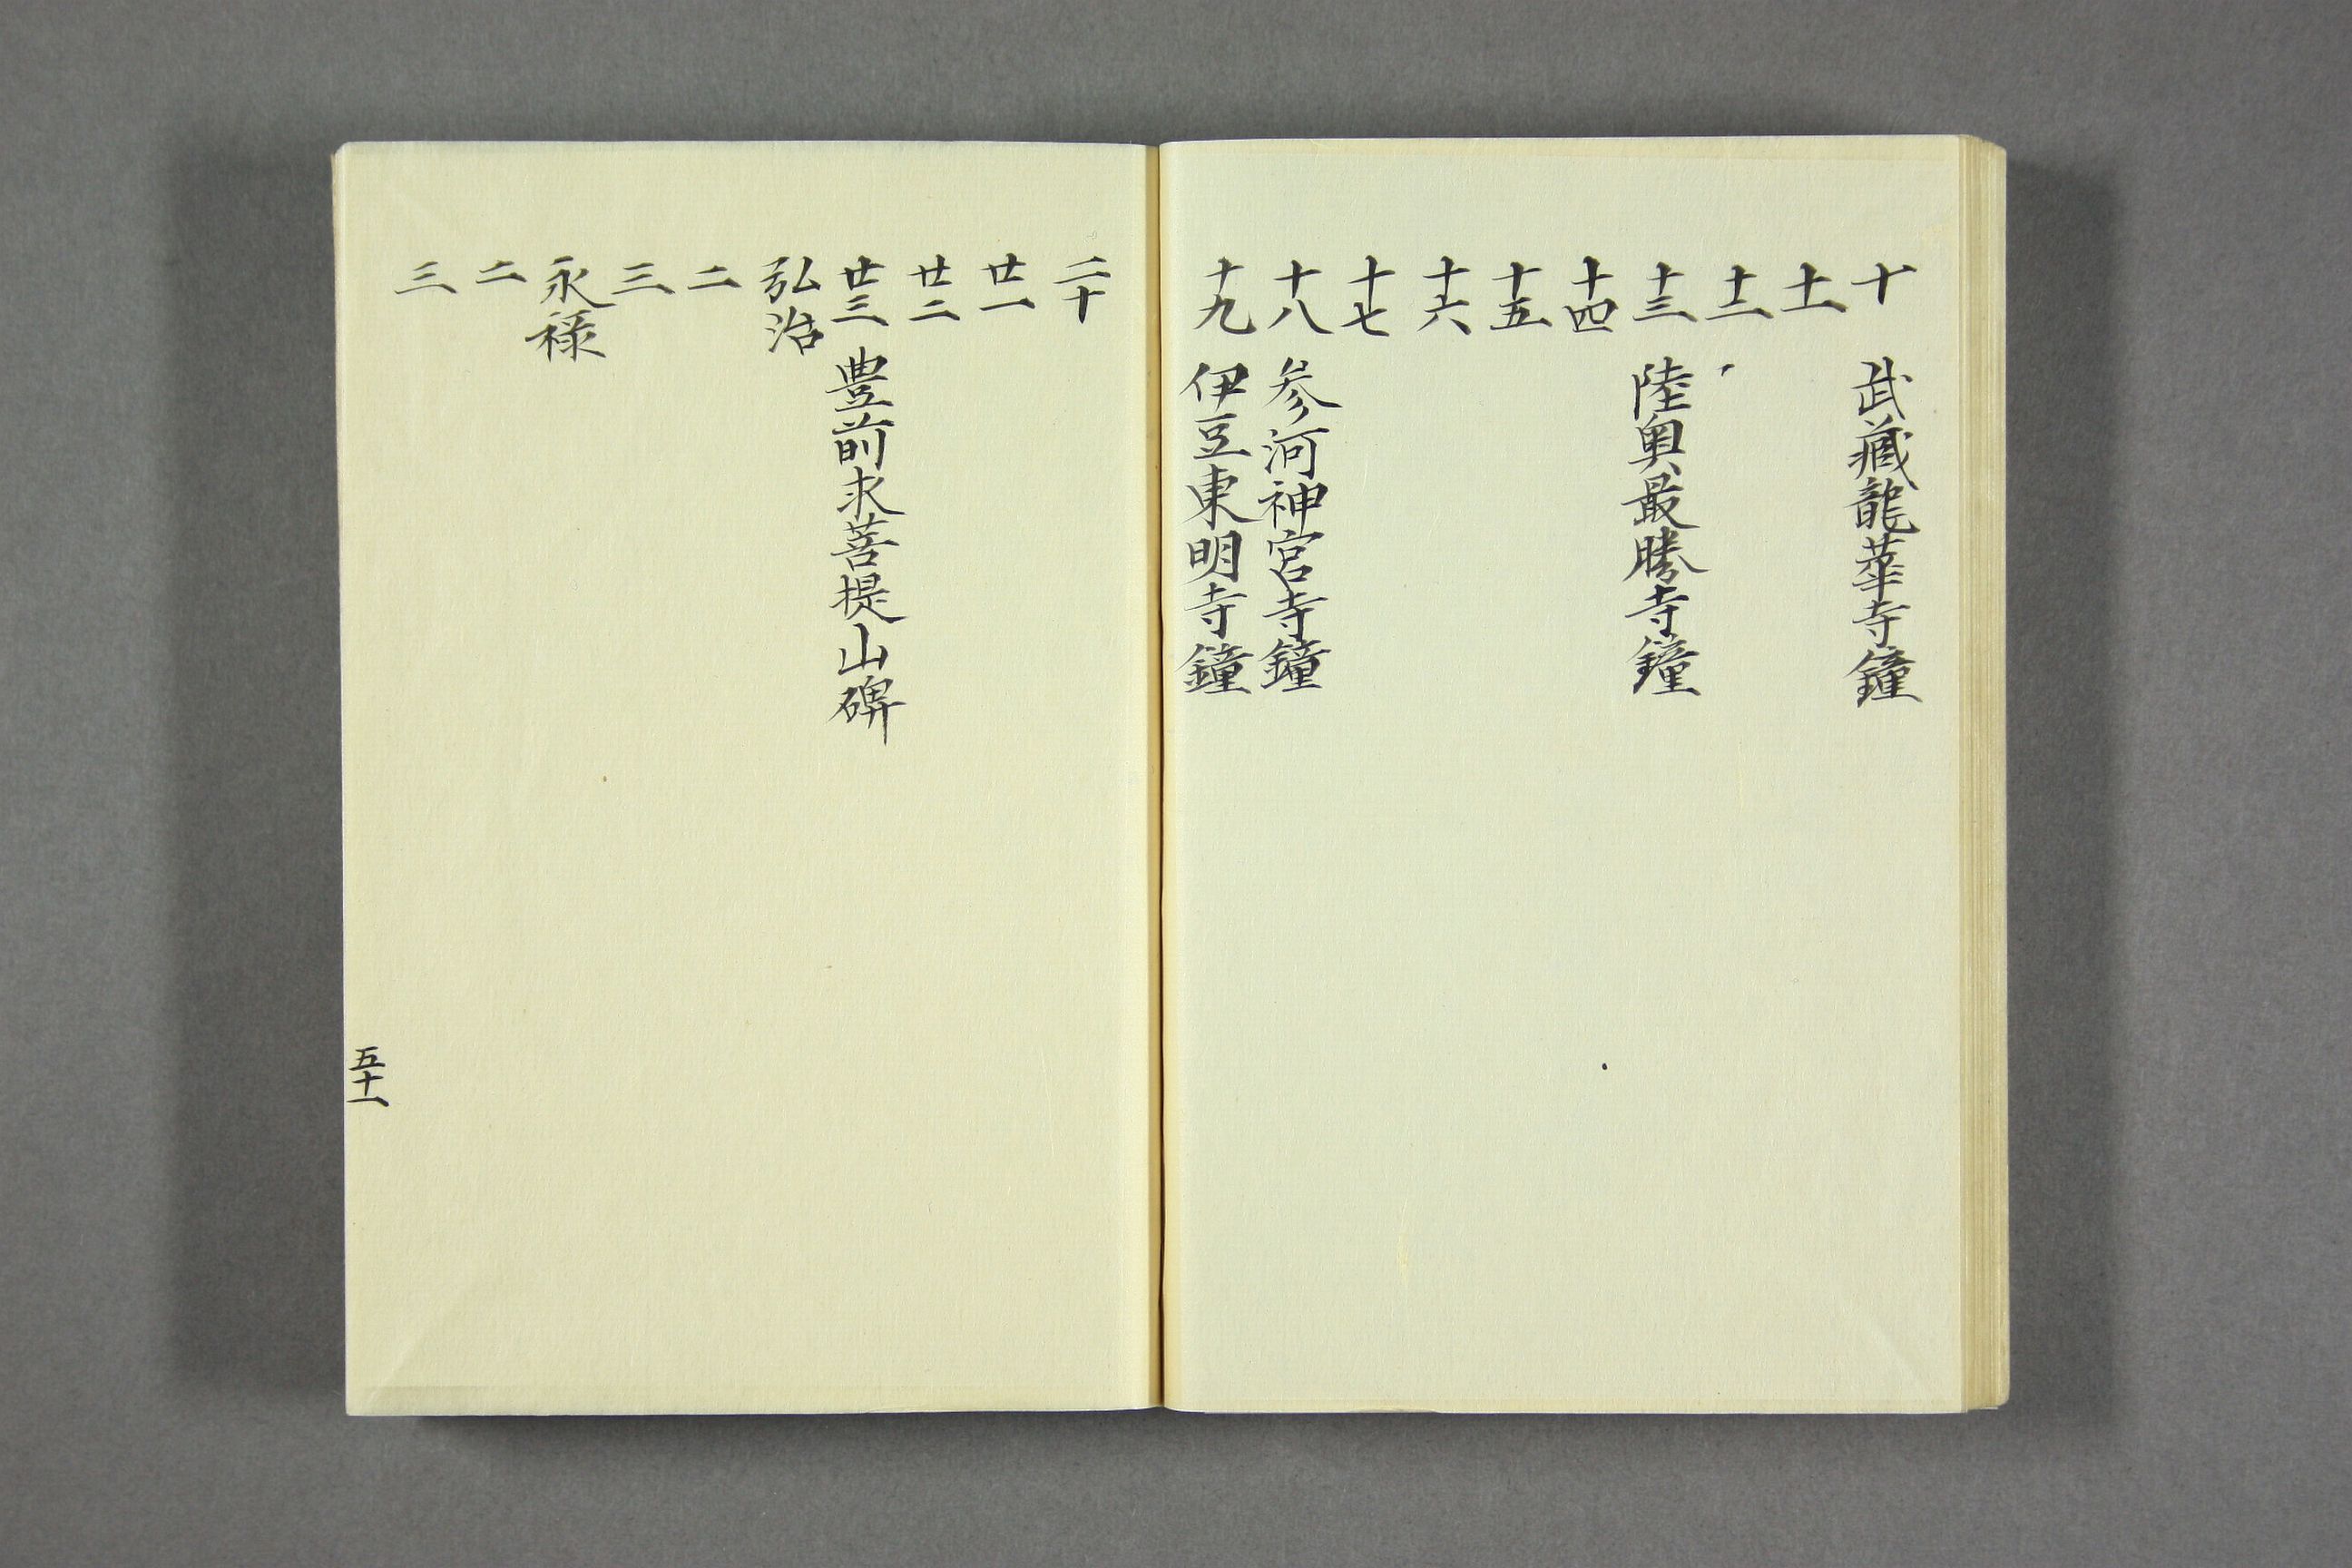 十 武藏龍華寺鐘
十一
十二
十三 陸奧最勝寺鐘
十四
十五
十六
十七
十八 参河神宮寺鐘
十九 伊豆東明寺鐘
二十
廿一
廿二
廿三 豊前求菩提山碑
弘治
二
三
永禄
二
三
五十一